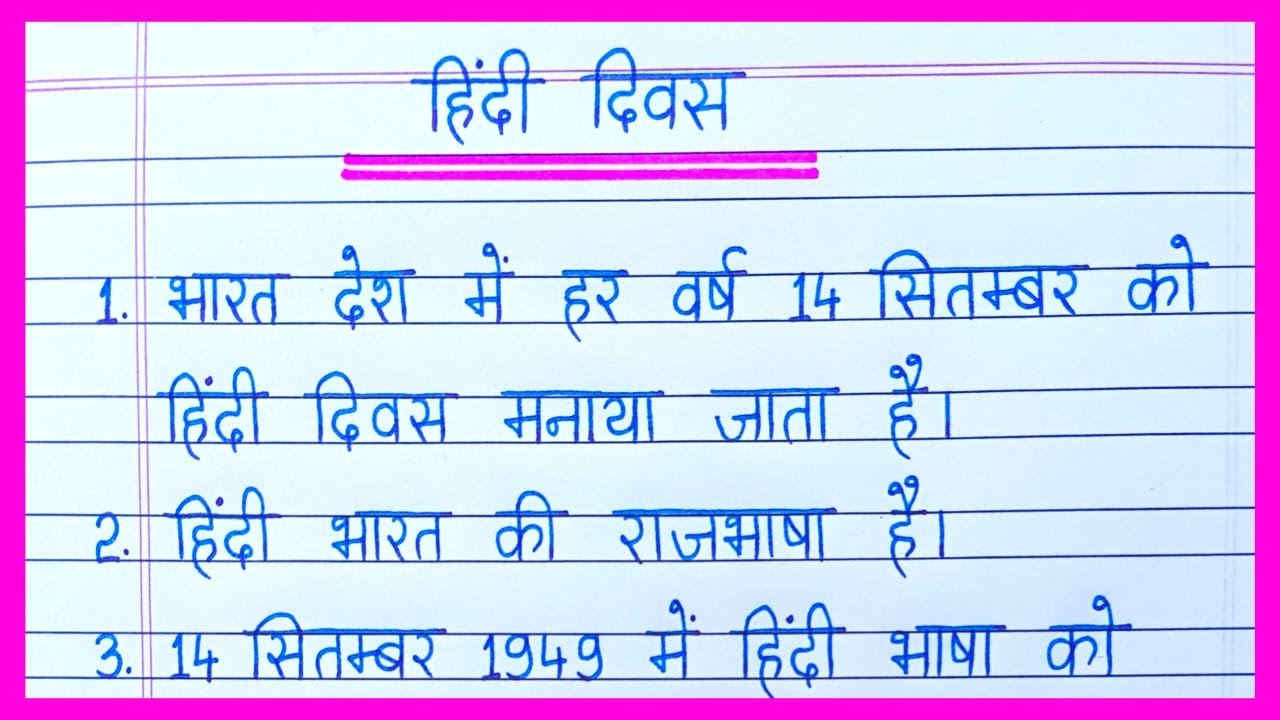 हिंदी दिवस
1. भारत देश में हर वर्ष 14 सितम्बर को
हिंदी दिवस मनाया जाता है।
2. हिंदी भारत की राजभाषा है।
3. 14 सितम्बर 1949 में हिंदी भाषा को